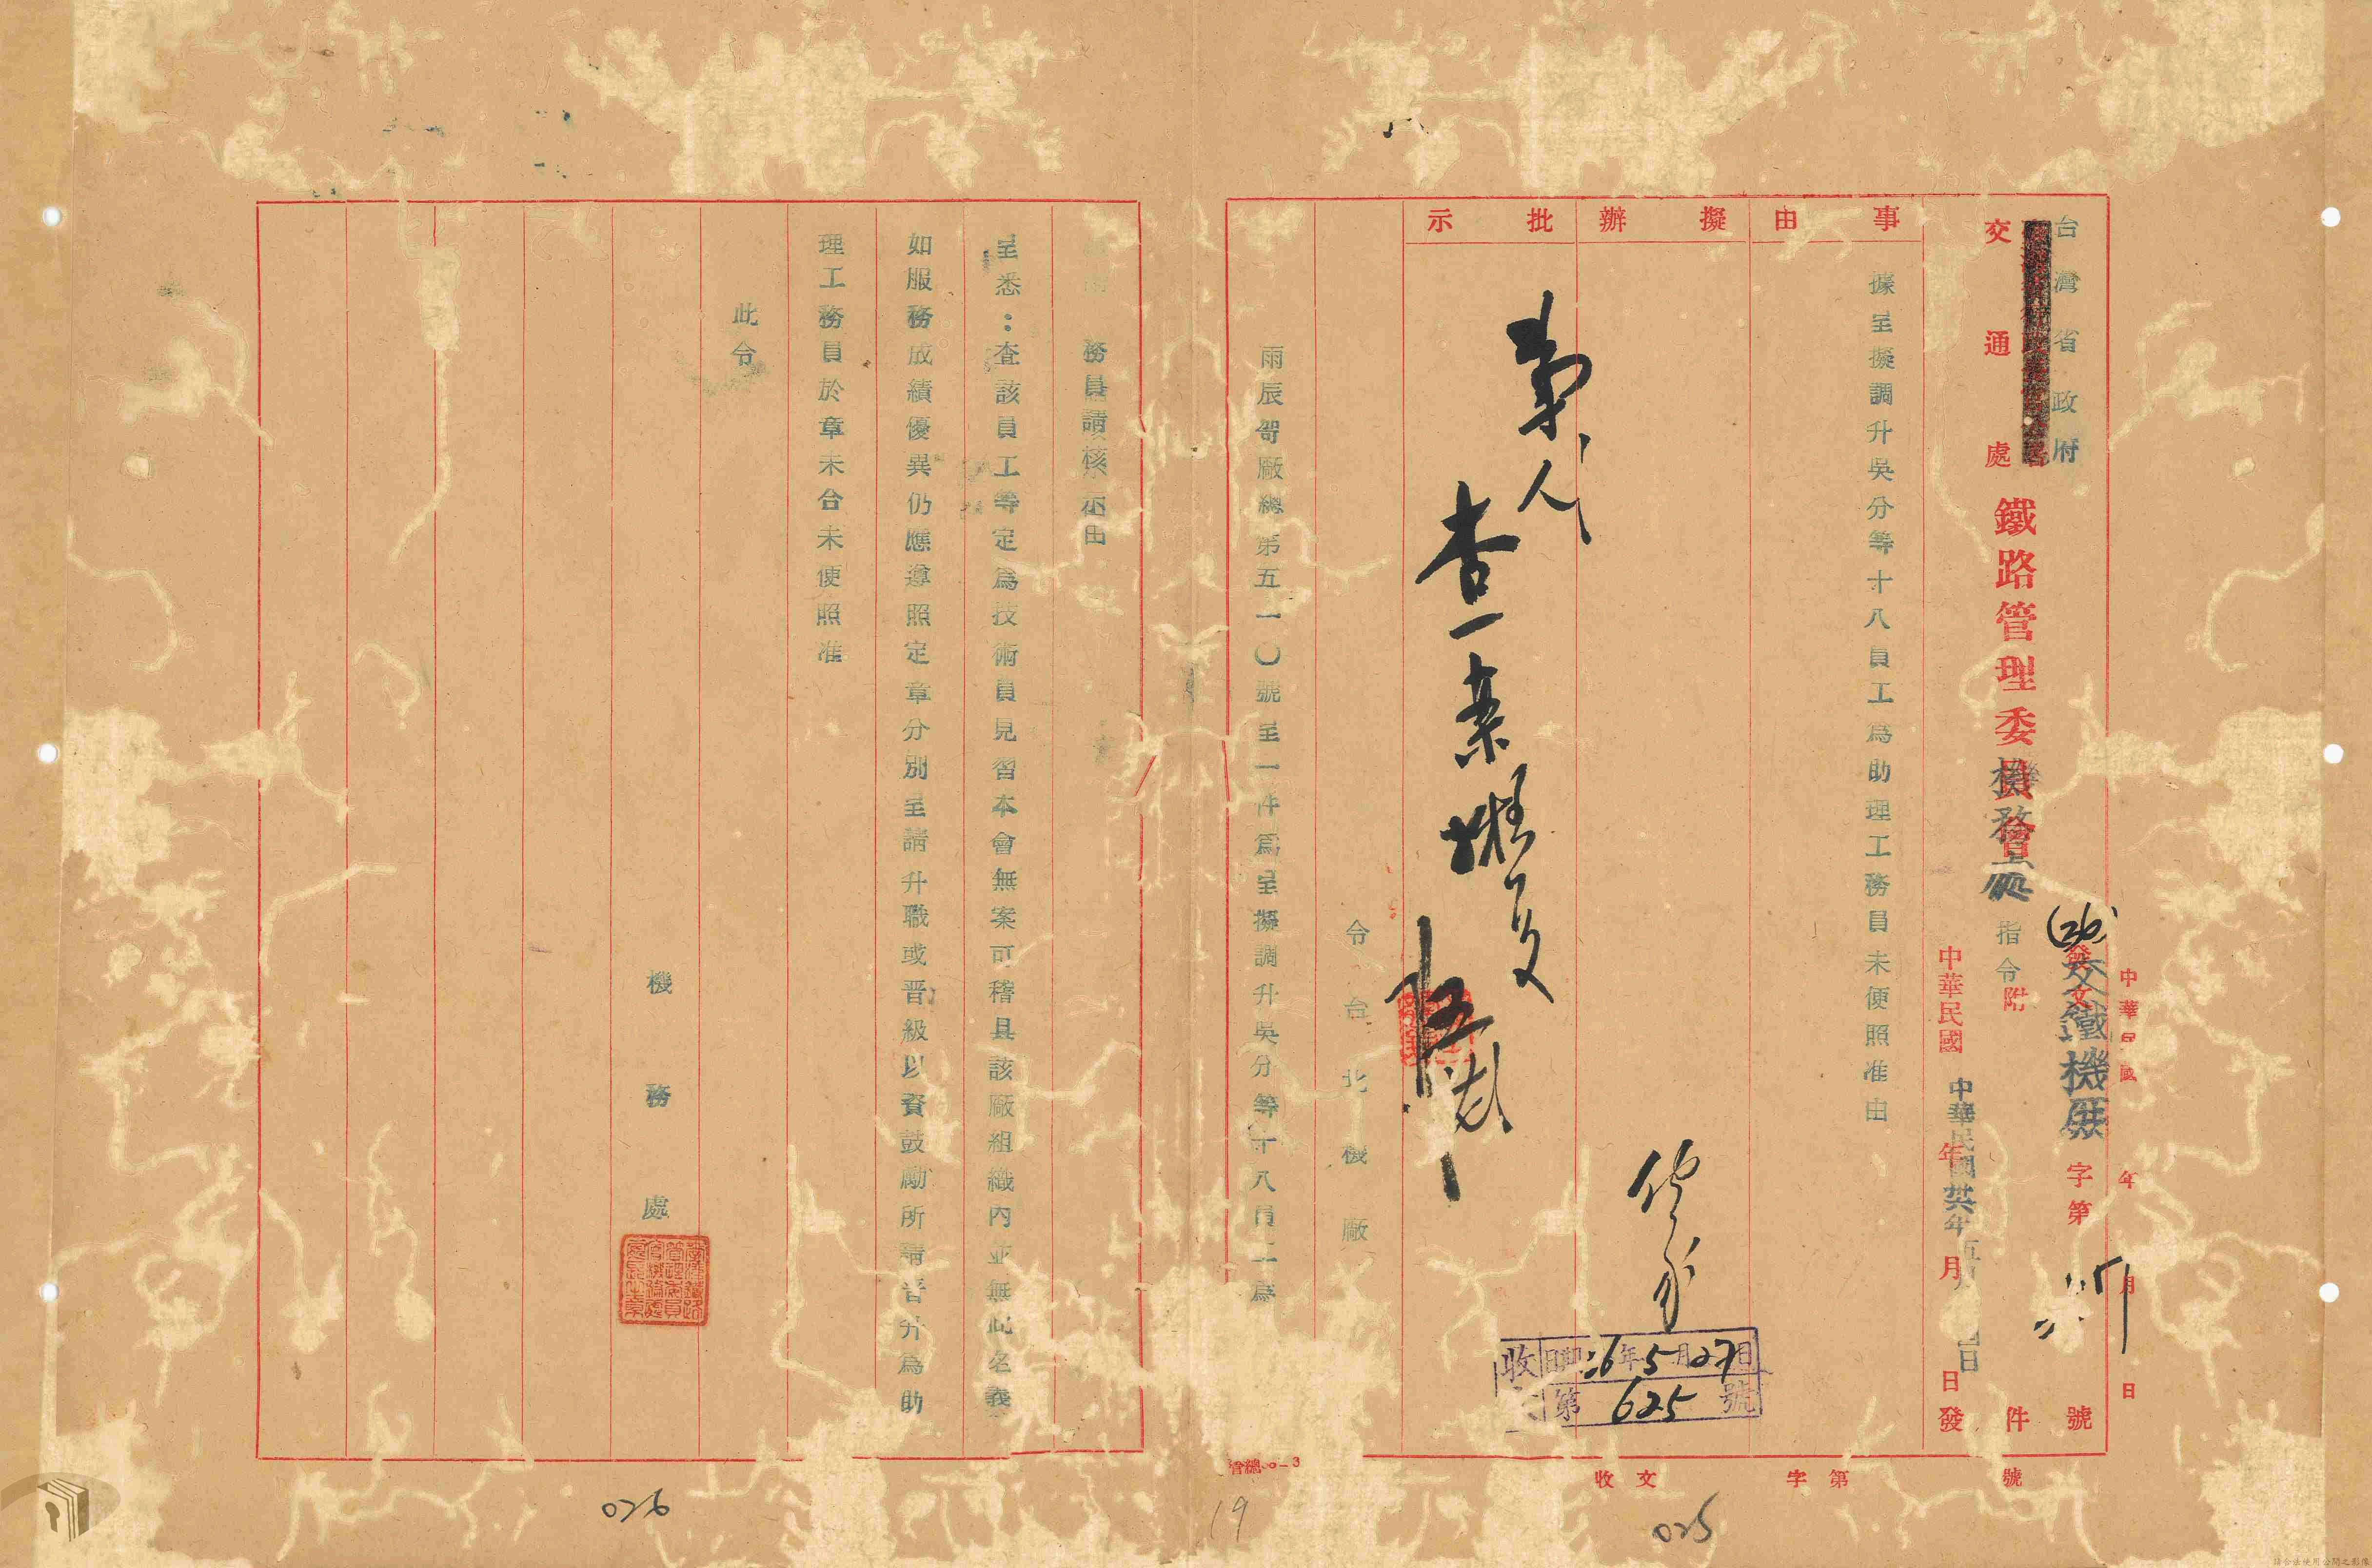 台灣省政府
交通處
鐵路管理委員會
機務處
指令
附件
發文
交鐵機廠字第
號
中華民國 年 月 日
中華民國 年 月 日發
中華民國卅六年五月
事由
擬辦
批示
據呈擬調升吳分等十八員工爲助理工務員未便照准由
令台北機廠
收 36年5月27日
第625號
雨辰哿廠總第五一〇號呈一件爲呈擬調升吳分等十八員工爲
務員請核示由
呈悉：查該員工等定爲技術員見習本會無案可稽且該廠組織內並無此名義
如服務成績優異仍應遵照定章分別呈請升職或晋級以資鼓勵所請晋升爲助
理工務員於章未合未便照准
此令
機務處
收文 字第 號
026
19
025